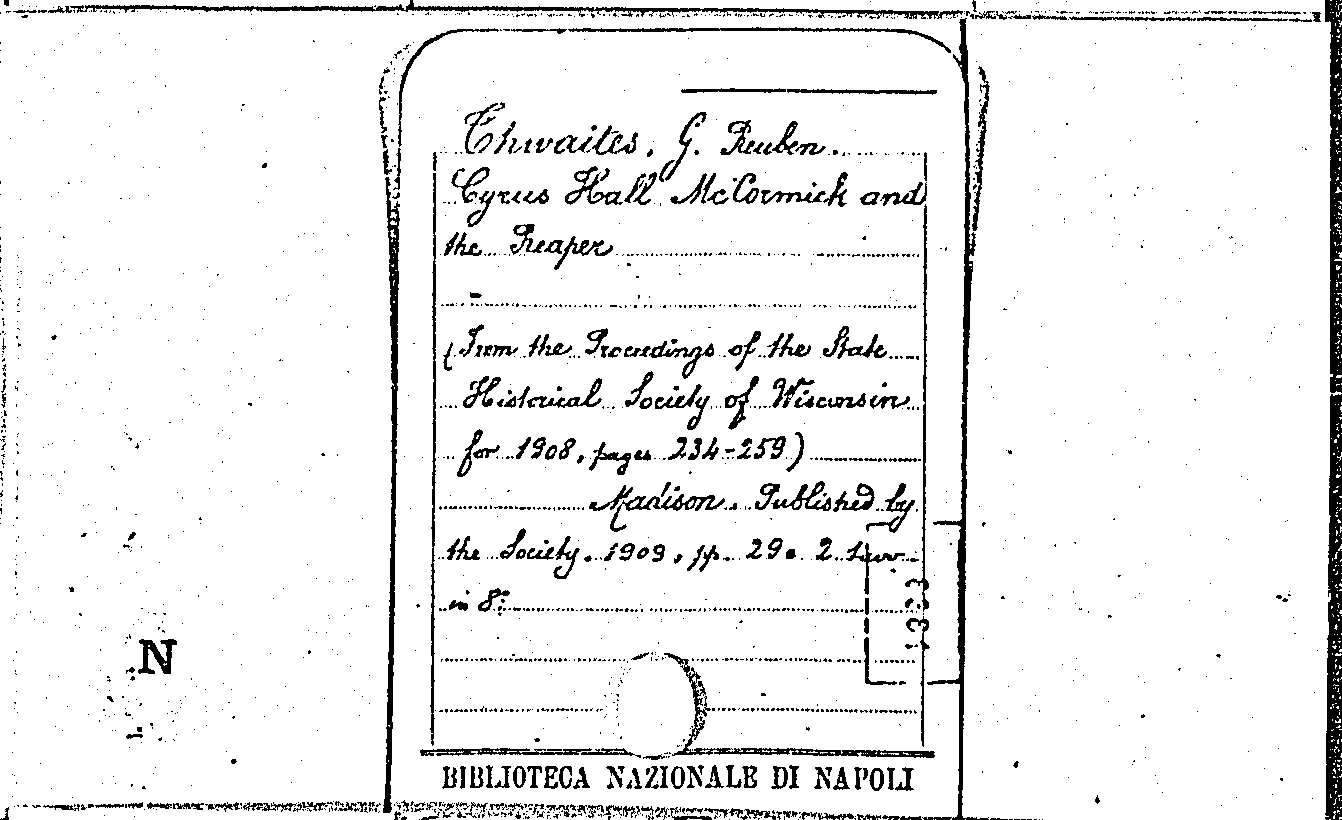 Thwaites, G. Reuben.
Cyrus Hall McCormick and
the Reaper
-
(From the Proceedings of the State
Historical Society of Wisconsin
for 1908, pages 234-259)
Madison. Published by
the Society. 1909, pp. 29. 2 tav.
in 8°.
N
BIBLIOTECA NAZIONALE DI NAPOLI